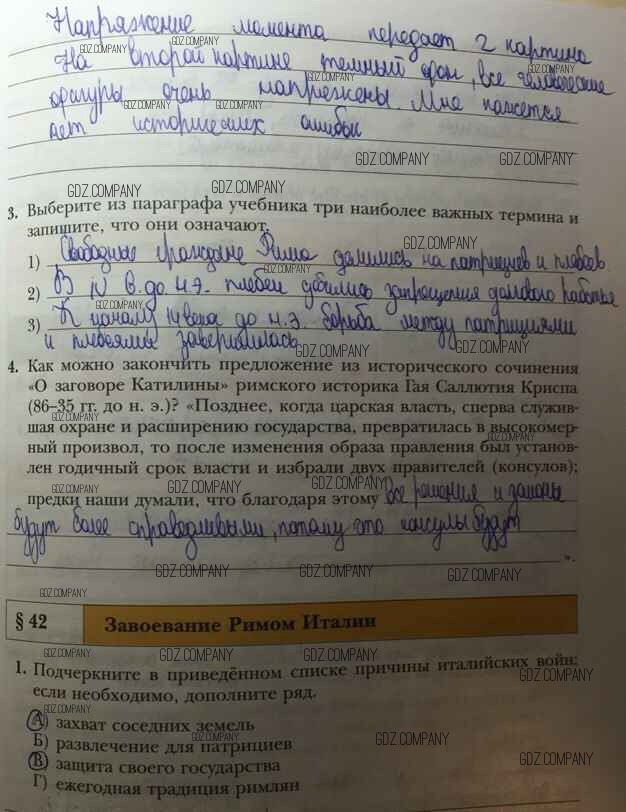 Напряжение момента передает 2 картина
На второй картине темный фон, все человеческие
фигуры очень напряжены. Мне кажется
нет исторических ошибок
3. Выберите из параграфа учебника три наиболее важных термина и
запишите, что они означают.
1) Свободные граждане Рима делились на патрициев и плебеев
2) В IV в. до н.э. плебеи добились запрещения долгового рабства
3) К началу века до н.э. борьба между патрициями
и плебеями завершилась
4. Как можно закончить предложение из исторического сочинения
«О заговоре Катилины» римского историка Гая Саллюстия Криспа
(86–35 гг. до н. э.)? «Позднее, когда царская власть, сперва служив-
шая охране и расширению государства, превратилась в высокомер-
ный произвол, то после изменения образа правления был установ-
лен годичный срок власти и избрали двух правителей (консулов);
предки наши думали, что благодаря этому все решения и законы
будут более справедливыми, потому что консулы будут
».
§ 42 Завоевание Римом Италии
1. Подчеркните в приведённом списке причины италийских войн;
если необходимо, дополните ряд.
А) захват соседних земель
Б) развлечение для патрициев
В) защита своего государства
Г) ежегодная традиция римлян
GDZ.COMPANY